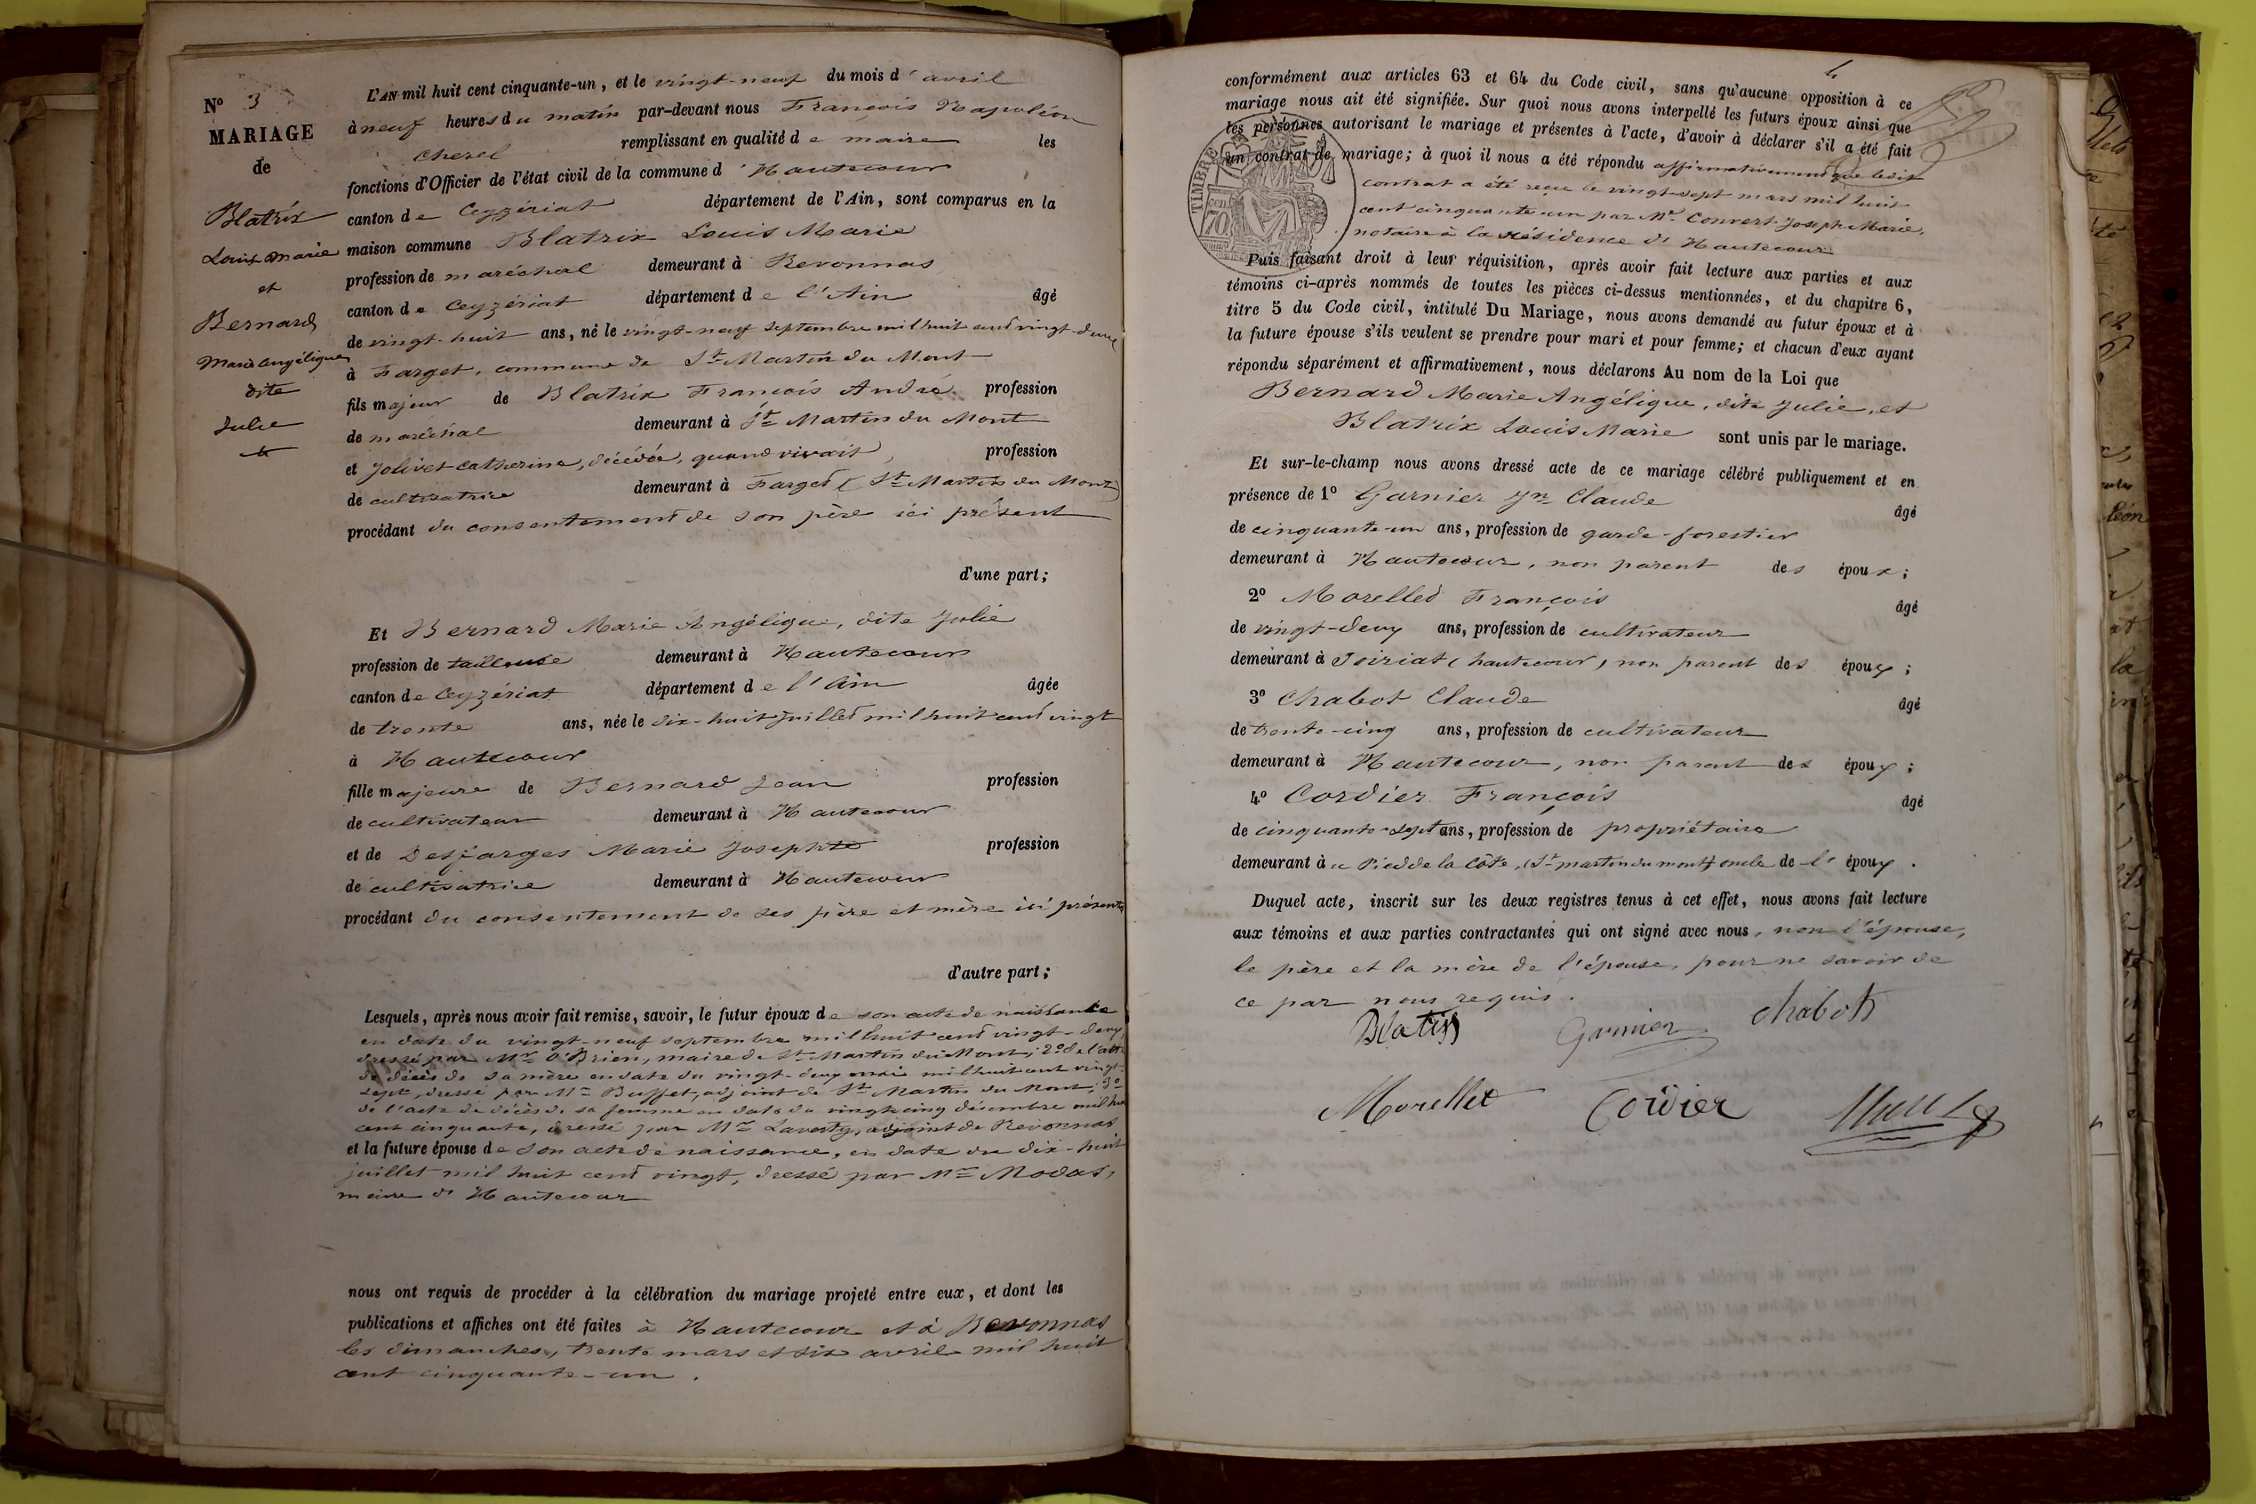 Nº 3
MARIAGE
de
Blatrix
Louis Marie
et
Bernard
Marie Angélique
dite
Julie
L'AN mil huit cent cinquante-un, et le vingt-neuf du mois d'avril
à neuf heures du matin par-devant nous François Napoléon
Cherel remplissant en qualité de maire les
fonctions d'Officier de l'état civil de la commune d'Hautecour
canton de Ceyzériat département de l'Ain, sont comparus en la
maison commune Blatrix Louis Marie
profession de maréchal demeurant à Revonnas
canton de Ceyzériat département de l'Ain âgé
de vingt-huit ans, né le vingt-neuf septembre mil huit cent vingt-deux
à Farget, commune de St Martin du Mont
fils majeur de Blatrix François André profession
de maréchal demeurant à St Martin du Mont
et Jolivet Catherine, décédée, quand vivait, profession
de cultivatrice demeurant à Farget (St Martin du Mont)
procédant du consentement de son père ici présent
d'une part;
Et Bernard Marie Angélique, dite Julie
profession de tailleuse demeurant à Hautecour
canton de Ceyzériat département de l'Ain âgée
de trente ans, née le dix-huit juillet mil huit cent vingt
à Hautecour
fille majeure de Bernard Jean profession
de cultivateur demeurant à Hautecour
et de Desfarges Marie Josephte profession
de cultivatrice demeurant à Hautecour
procédant du consentement de ses père et mère ici présents
d'autre part;
Lesquels, après nous avoir fait remise, savoir, le futur époux de son acte de naissance
en date du vingt-neuf septembre mil huit cent vingt-deux,
dressé par Mr O'Brien, maire de St Martin du Mont; 2º de l'acte
de décès de sa mère en date du vingt-deux mai mil huit cent vingt-
sept, dressé par Mr Buffet, adjoint de St Martin du Mont; 3º
de l'acte de décès de sa femme en date du vingt-cinq décembre mil huit
cent cinquante, dressé par Mr adjoint de Revonnas
et la future épouse de son acte de naissance, en date du dix-huit
juillet mil huit cent vingt, dressé par Mr Modas,
maire d'Hautecour
nous ont requis de procéder à la célébration du mariage projeté entre eux, et dont les
publications et affiches ont été faites à Hautecour et à Revonnas
les dimanches, trente mars et six avril mil huit
cent cinquante-un.
4
conformément aux articles 63 et 64 du Code civil, sans qu'aucune opposition à ce
mariage nous ait été signifiée. Sur quoi nous avons interpellé les futurs époux ainsi que
les personnes autorisant le mariage et présentes à l'acte, d'avoir à déclarer s'il a été fait
un contrat de mariage; à quoi il nous a été répondu affirmativement que ledit
contrat a été reçu le vingt-sept mars mil huit
cent cinquante un par Mr Convert Joseph Marie,
notaire à la résidence d'Hautecour
TIMBRE
cen.
70
Puis faisant droit à leur réquisition, après avoir fait lecture aux parties et aux
témoins ci-après nommés de toutes les pièces ci-dessus mentionnées, et du chapitre 6,
titre 5 du Code civil, intitulé Du Mariage, nous avons demandé au futur époux et à
la future épouse s'ils veulent se prendre pour mari et pour femme; et chacun d'eux ayant
répondu séparément et affirmativement, nous déclarons Au nom de la Loi que
Bernard Marie Angélique, dite Julie, et
Blatrix Louis Marie sont unis par le mariage.
Et sur-le-champ nous avons dressé acte de ce mariage célébré publiquement et en
présence de 1º Garnier Jn Claude âgé
de cinquante-un ans, profession de garde-forestier
demeurant à Hautecour, non parent des époux;
2º Morellet François âgé
de vingt-deux ans, profession de cultivateur
demeurant à Soiriat (hautecour), non parent des époux;
3º Chabot Claude âgé
de trente-cinq ans, profession de cultivateur
demeurant à Hautecour, non parent des époux;
4º Cordier François âgé
de cinquante-sept ans, profession de propriétaire
demeurant à u Pied de la Côte, (St martin du mont) oncle de l'époux.
Duquel acte, inscrit sur les deux registres tenus à cet effet, nous avons fait lecture
aux témoins et aux parties contractantes qui ont signé avec nous, non l'épouse,
le père et la mère de l'épouse, pour ne savoir de
ce par nous requis.
Blatrix Garnier Chabot
Morellet Cordier